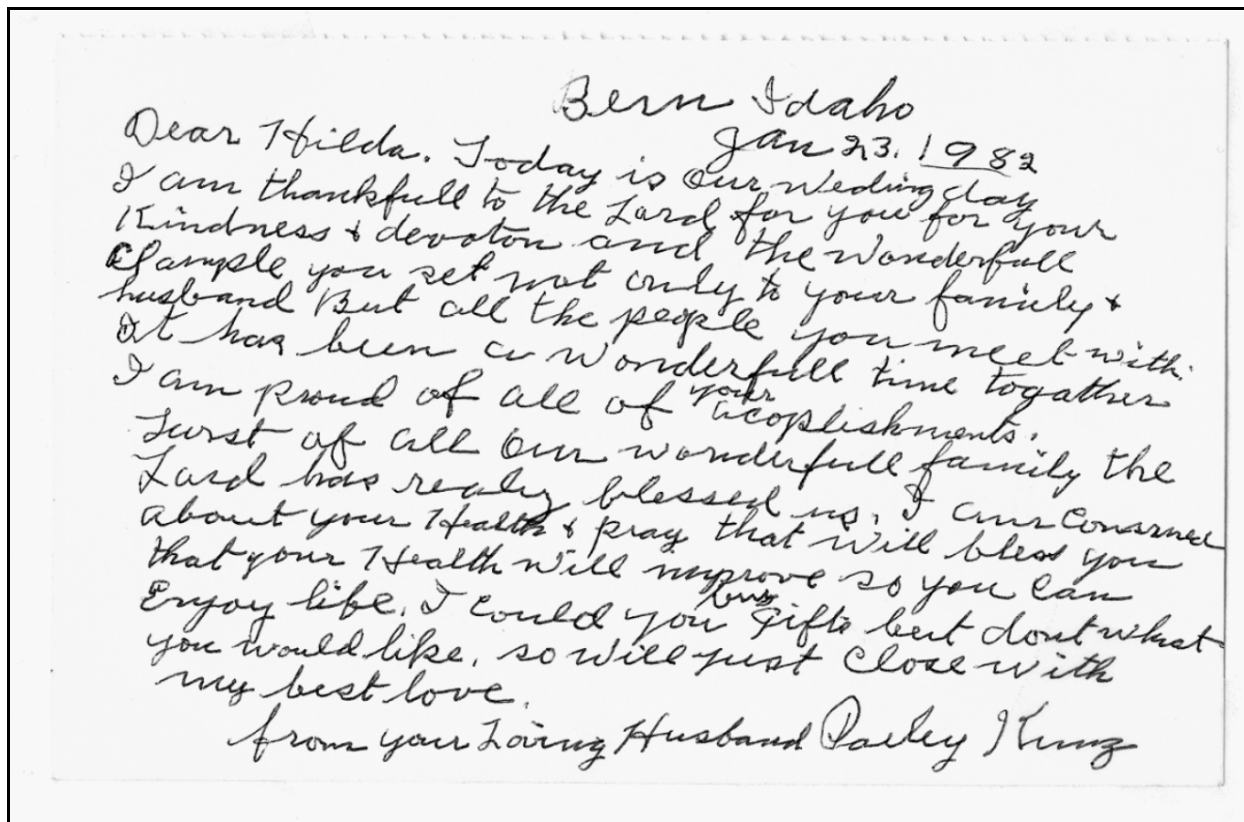 Bern Idaho
Jan 23. 1982
Dear Hilda. Today is Our Weding day
I am thankfull to the Lord for you for your
Kindness & devoton and the Wonderfull
Example you set not only to your family &
husband But all the people you meet with.
It has been a Wonderfull time togather
I am proud of all of your acoplishments.
Furst of all Our wonderfull family the
Lord has realy blessed us. I am Consrned
about your Health & pray that Will bless you
that your Health Will improve so you Can
Enjoy life. I Could you buy Gifts but dont what
you would like. so Will just Close with
my best love.
from your Loving Husband Parley Kunz